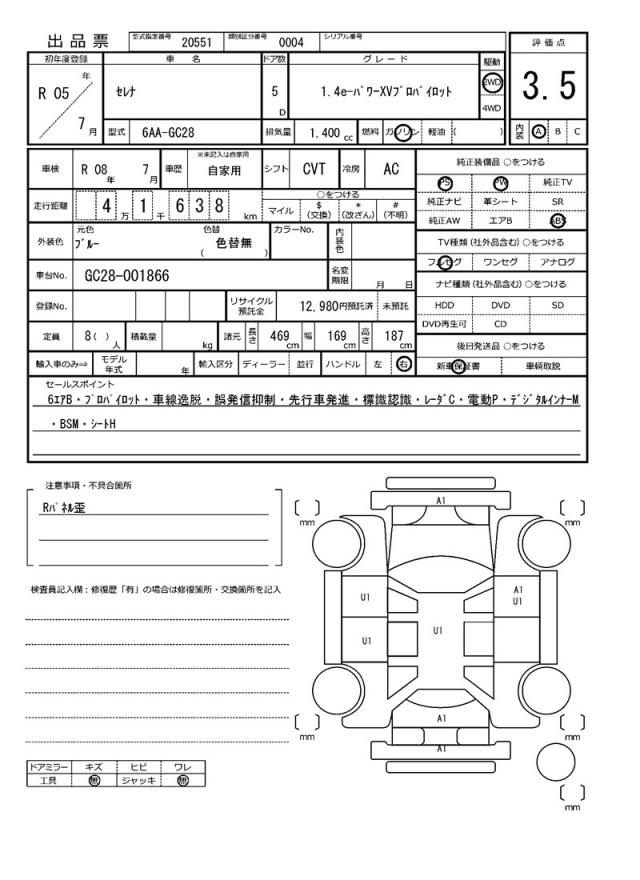 出品票
型式指定番号 20551 類別区分番号 0004 シリアル番号
初年度登録 車名 ドア数 グレード 駆動 評価点
R 05 年 7 月 セレナ 5 D 1.4e-パワーXVプロパイロット 2WD 4WD 3.5
型式 6AA-GC28 排気量 1,400 cc 燃料 ガソリン 軽油 ( ) 内装 A B C
車検 R 08 年 7 月 車歴 ※未記入は自家用 自家用 シフト CVT 冷房 AC
走行距離 4 万 1 千 6 3 8 km ○をつける マイル $ (交換) * (改ざん) # (不明)
外装色 元色 ブルー 色替 色替無 ( ) カラーNo. 内装色
車台No. GC28-001866 名変期限 月 日
登録No. リサイクル預託金 12,980円預託済 未預託
定員 8( ) 人 積載量 kg 諸元 長さ 469 cm 幅 169 cm 高さ 187 cm
輸入車のみ⇒ モデル年式 年 輸入区分 ディーラー 並行 ハンドル 左 右
純正装備品 ○をつける
PS PW 純正TV
純正ナビ 革シート SR
純正AW エアB ABS
TV種類 (社外品含む) ○をつける
フルセグ ワンセグ アナログ
ナビ種類 (社外品含む) ○をつける
HDD DVD SD
DVD再生可 CD
後日発送品 ○をつける
新車保証書 車輌取説
セールスポイント
6エアB・プロパイロット・車線逸脱・誤発信抑制・先行車発進・標識認識・レーダC・電動P・デジタルインナーM
・BSM・シートH
注意事項・不具合箇所
Rパネル歪
検査員記入欄：修復歴「有」の場合は修復箇所・交換箇所を記入
ドアミラー キズ ヒビ ワレ
工具 無 ジャッキ 無
A1
mm mm
U1 A1
U1
U1 U1
A1
mm A1 mm
mm